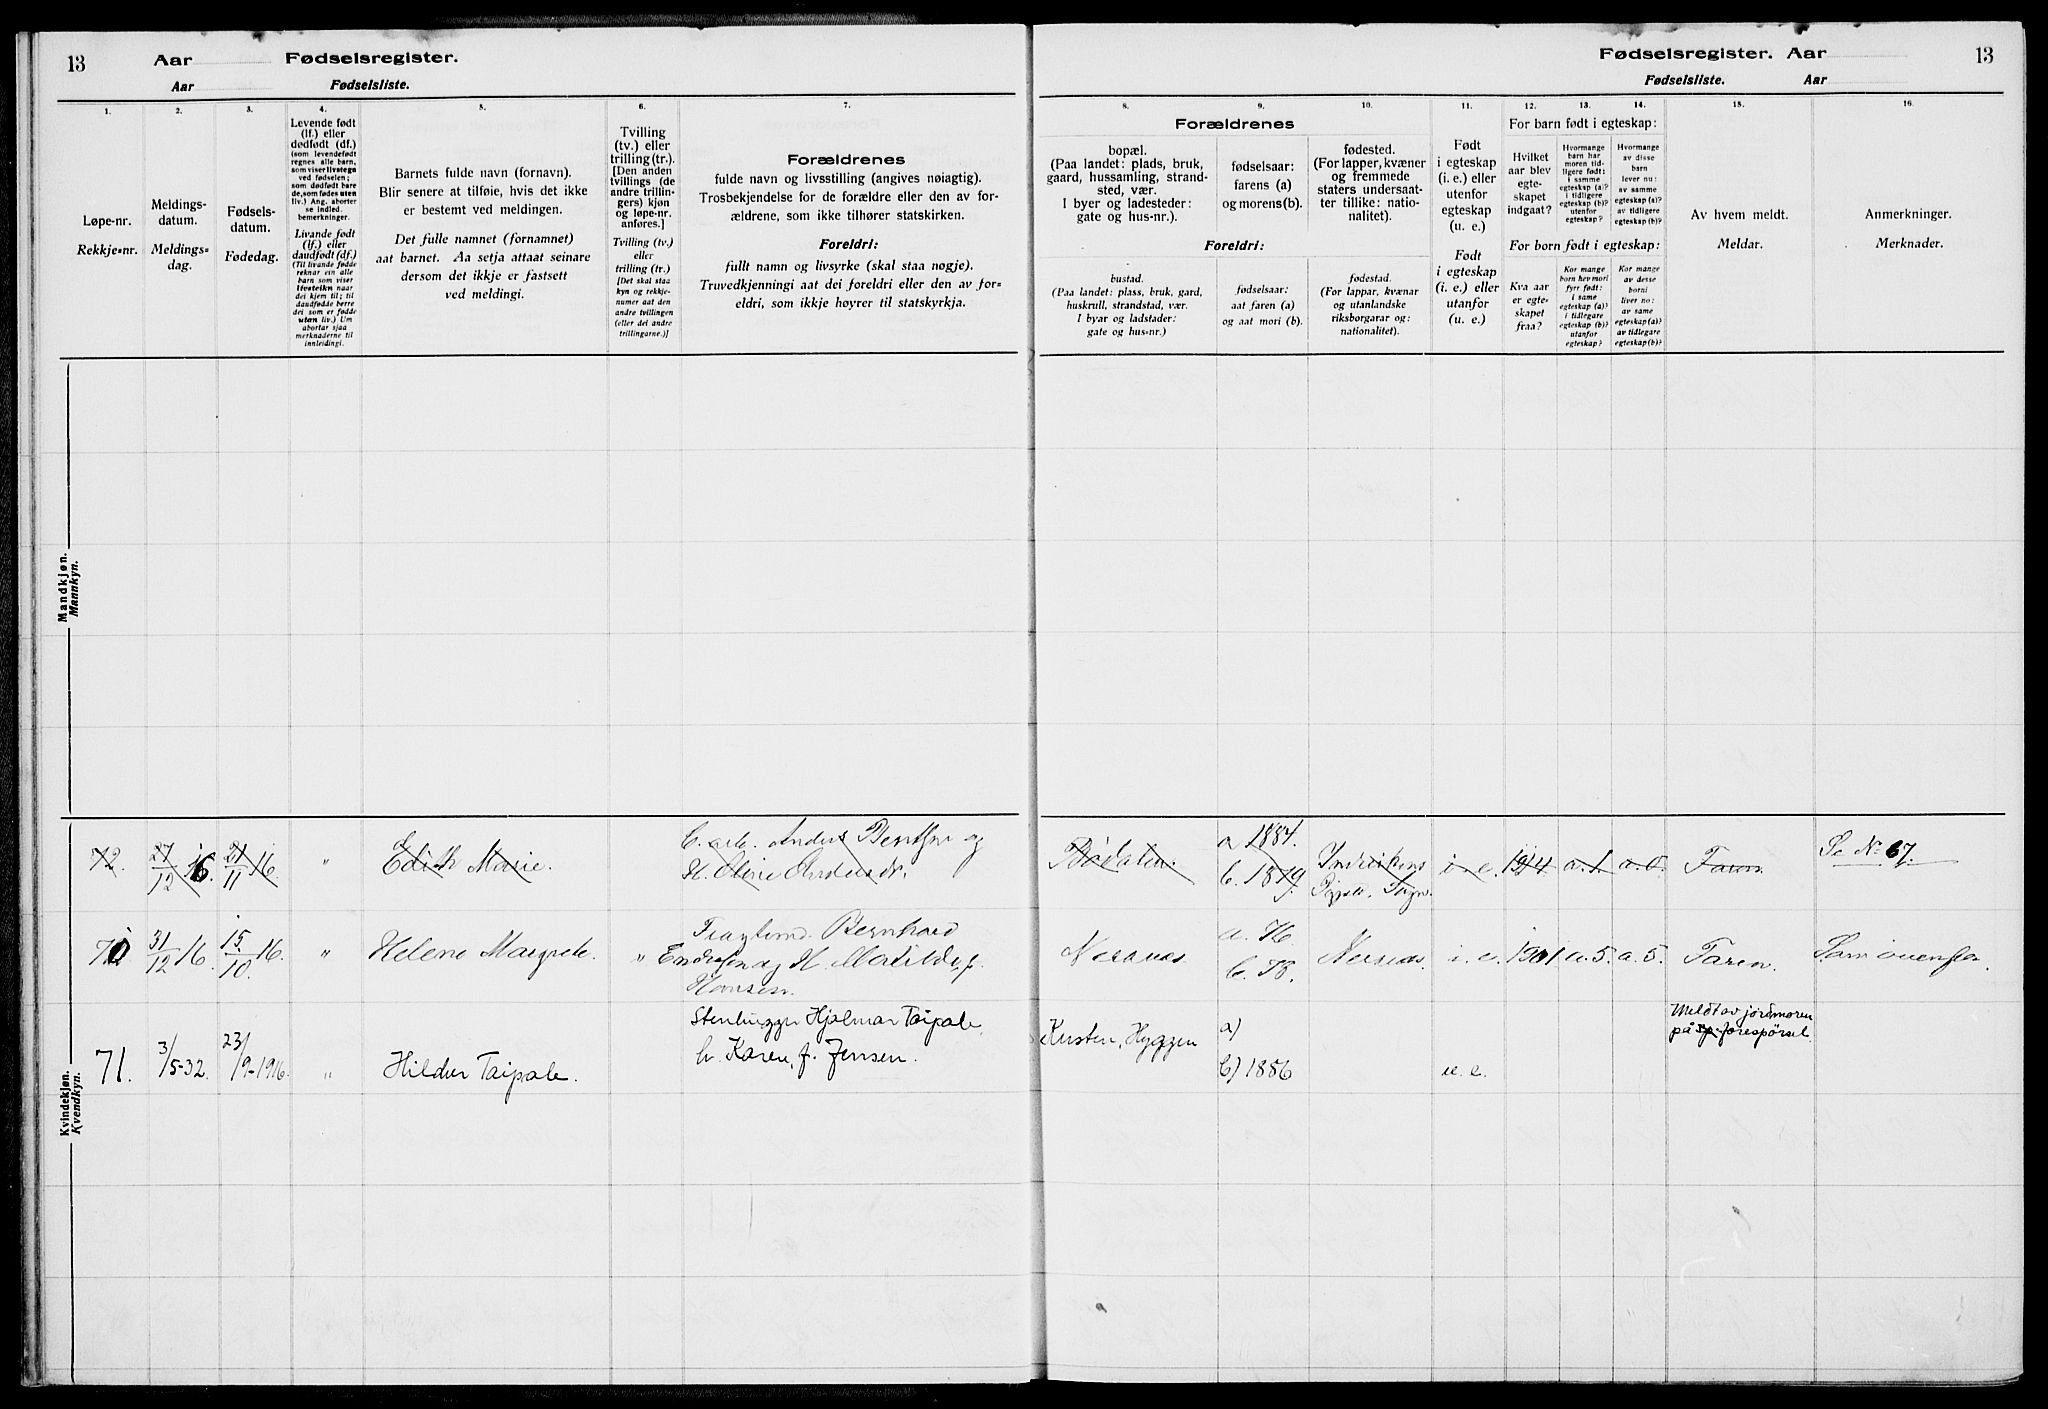 13 Aar Fødselsregister.
Aar Fødselsliste.
Fødselsregister. Aar 13
Fødselsliste. Aar
1. 2. 3. 4. 5. 6. 7.
Løpe-nr.
Rekkje=nr.
Meldings-
datum.
Meldings=
dag.
Fødsels-
datum.
Fødedag.
Levende født
(lf.) eller
dødfødt (df.)
(som levendefødt
regnes alle barn,
som viser livstegn
ved fødselen;
som dødfødt bare
de, som fødes uten
liv.) Ang. aborter
se indled.
bemerkninger.
Livande født
(lf.) eller
daudfødt (df.)
(Til livande fødde
reknar ein alle
born som viser
lfvsteikn naar
dei kjem til; til
daudfødde berre
dei som er fødde
utan liv.) Um
abortar sjaa
merknaderne til
innleidingi.
Barnets fulde navn (fornavn).
Blir senere at tilføie, hvis det ikke
er bestemt ved meldingen.
Det fulle namnet (fornamnet)
aat barnet. Aa setja attaat seinare
dersom det ikkje er fastsett
ved meldingi.
Tvilling
(tv.) eller
trilling (tr.).
[Den anden
tvillings (de
andre trillin-
gers) kjøn
og løpe-nr.
anføres.]
Tvilling (tv.)
eller
trilling (tr.)
[Det skal staa
kyn og rekkje-
numer aat den
andre tvillingen
(eller dei andre
trillingarne.)]
Forældrenes
fulde navn og livsstilling (angives nøiagtig).
Trosbekjendelse for de forældre eller den av for-
ældrene, som ikke tilhører statskirken.
Foreldri:
fullt namn og livsyrke (skal staa nøgje).
Truvedkjenningi aat dei foreldri eller den av for-
eldri, som ikkje høyrer til statskyrkja.
8. 9. 10. 11. 12. 13. 14. 15. 16.
Forældrenes
bopæl.
(Paa landet: plads, bruk,
gaard, hussamling, strand-
sted, vær.
I byer og ladesteder:
gate og hus-nr.).
fødselsaar:
farens (a)
og morens (b).
fødested.
(For lapper, kvæner
og fremmede
staters undersaat-
ter tillike: natio-
nalitet).
Foreldri:
bustad.
(Paa landet: plass, bruk, gard,
huskrull, strandstad, vær.
I byar og ladstader:
gate og hus-nr.)
fødselsaar:
aat faren (a)
og aat mori (b).
fødestad.
(For lappar, kvænar
og utanlandske
riksborgarar og:
nationalitet).
Født
i egteskap
(i. e.) eller
utenfor
egteskap
(u. e.)
Født
i egteskap
(i. e.) eller
utanfor
egteskap
(u. e.)
For barn født i egteskap:
Hvilket
aar blev
egte-
skapet
indgaat?
Hvormange
barn har
moren tid-
ligere født:
i samme
egteskap (a)?
i tidligere
egteskap (b)?
utenfor
egteskap?
Hvormange
av disse
barn
lever nu:
av samme
egteskap (a)?
av tidligere
egteskap (b)?
For born født i egteskap:
Kva aar
er egte-
skapet
fraa?
Kor mange
born hev mori
fyrr født:
i same
egteskap (a)?
i tidlegare
egteskap (b)?
utanfor
egteskap?
Kor mange
av desse
borni
liver no:
av same
egteskap (a)?
av tidlegare
egteskap (b)?
Av hvem meldt.
Meldar.
Anmerkninger.
Merknader.
Mandkjøn.
Mannkyn.
Kvindekjøn.
Kvendkyn.
72. 27/12 16. 21/11 16. " Edith Marie. Anders Berntsen og
H. Oline Andersdr.
Bødalen. a 1884.
b. 1879. i. e. 1914 a. 1. a. 0. Faren Se No 67.
70 31/12 16. 15/10 16. " Helene Margrete. " Bernhard
Endresen og H. Matilde f.
Hansen.
Nersnes a. 76.
b. 78. Nersnes. i. e. 1901 a. 5. a. 5. Faren. Som ovenfor.
71. 3/5-32. 23/9-1916. " Hildur Taipale. Stenhugger Hjalmar Taipale
h. Karen, f. Jensen.
Kirsten, Hyggen a)
b) 1886 u. e. Meldt av jordmoren
på forespørsel.